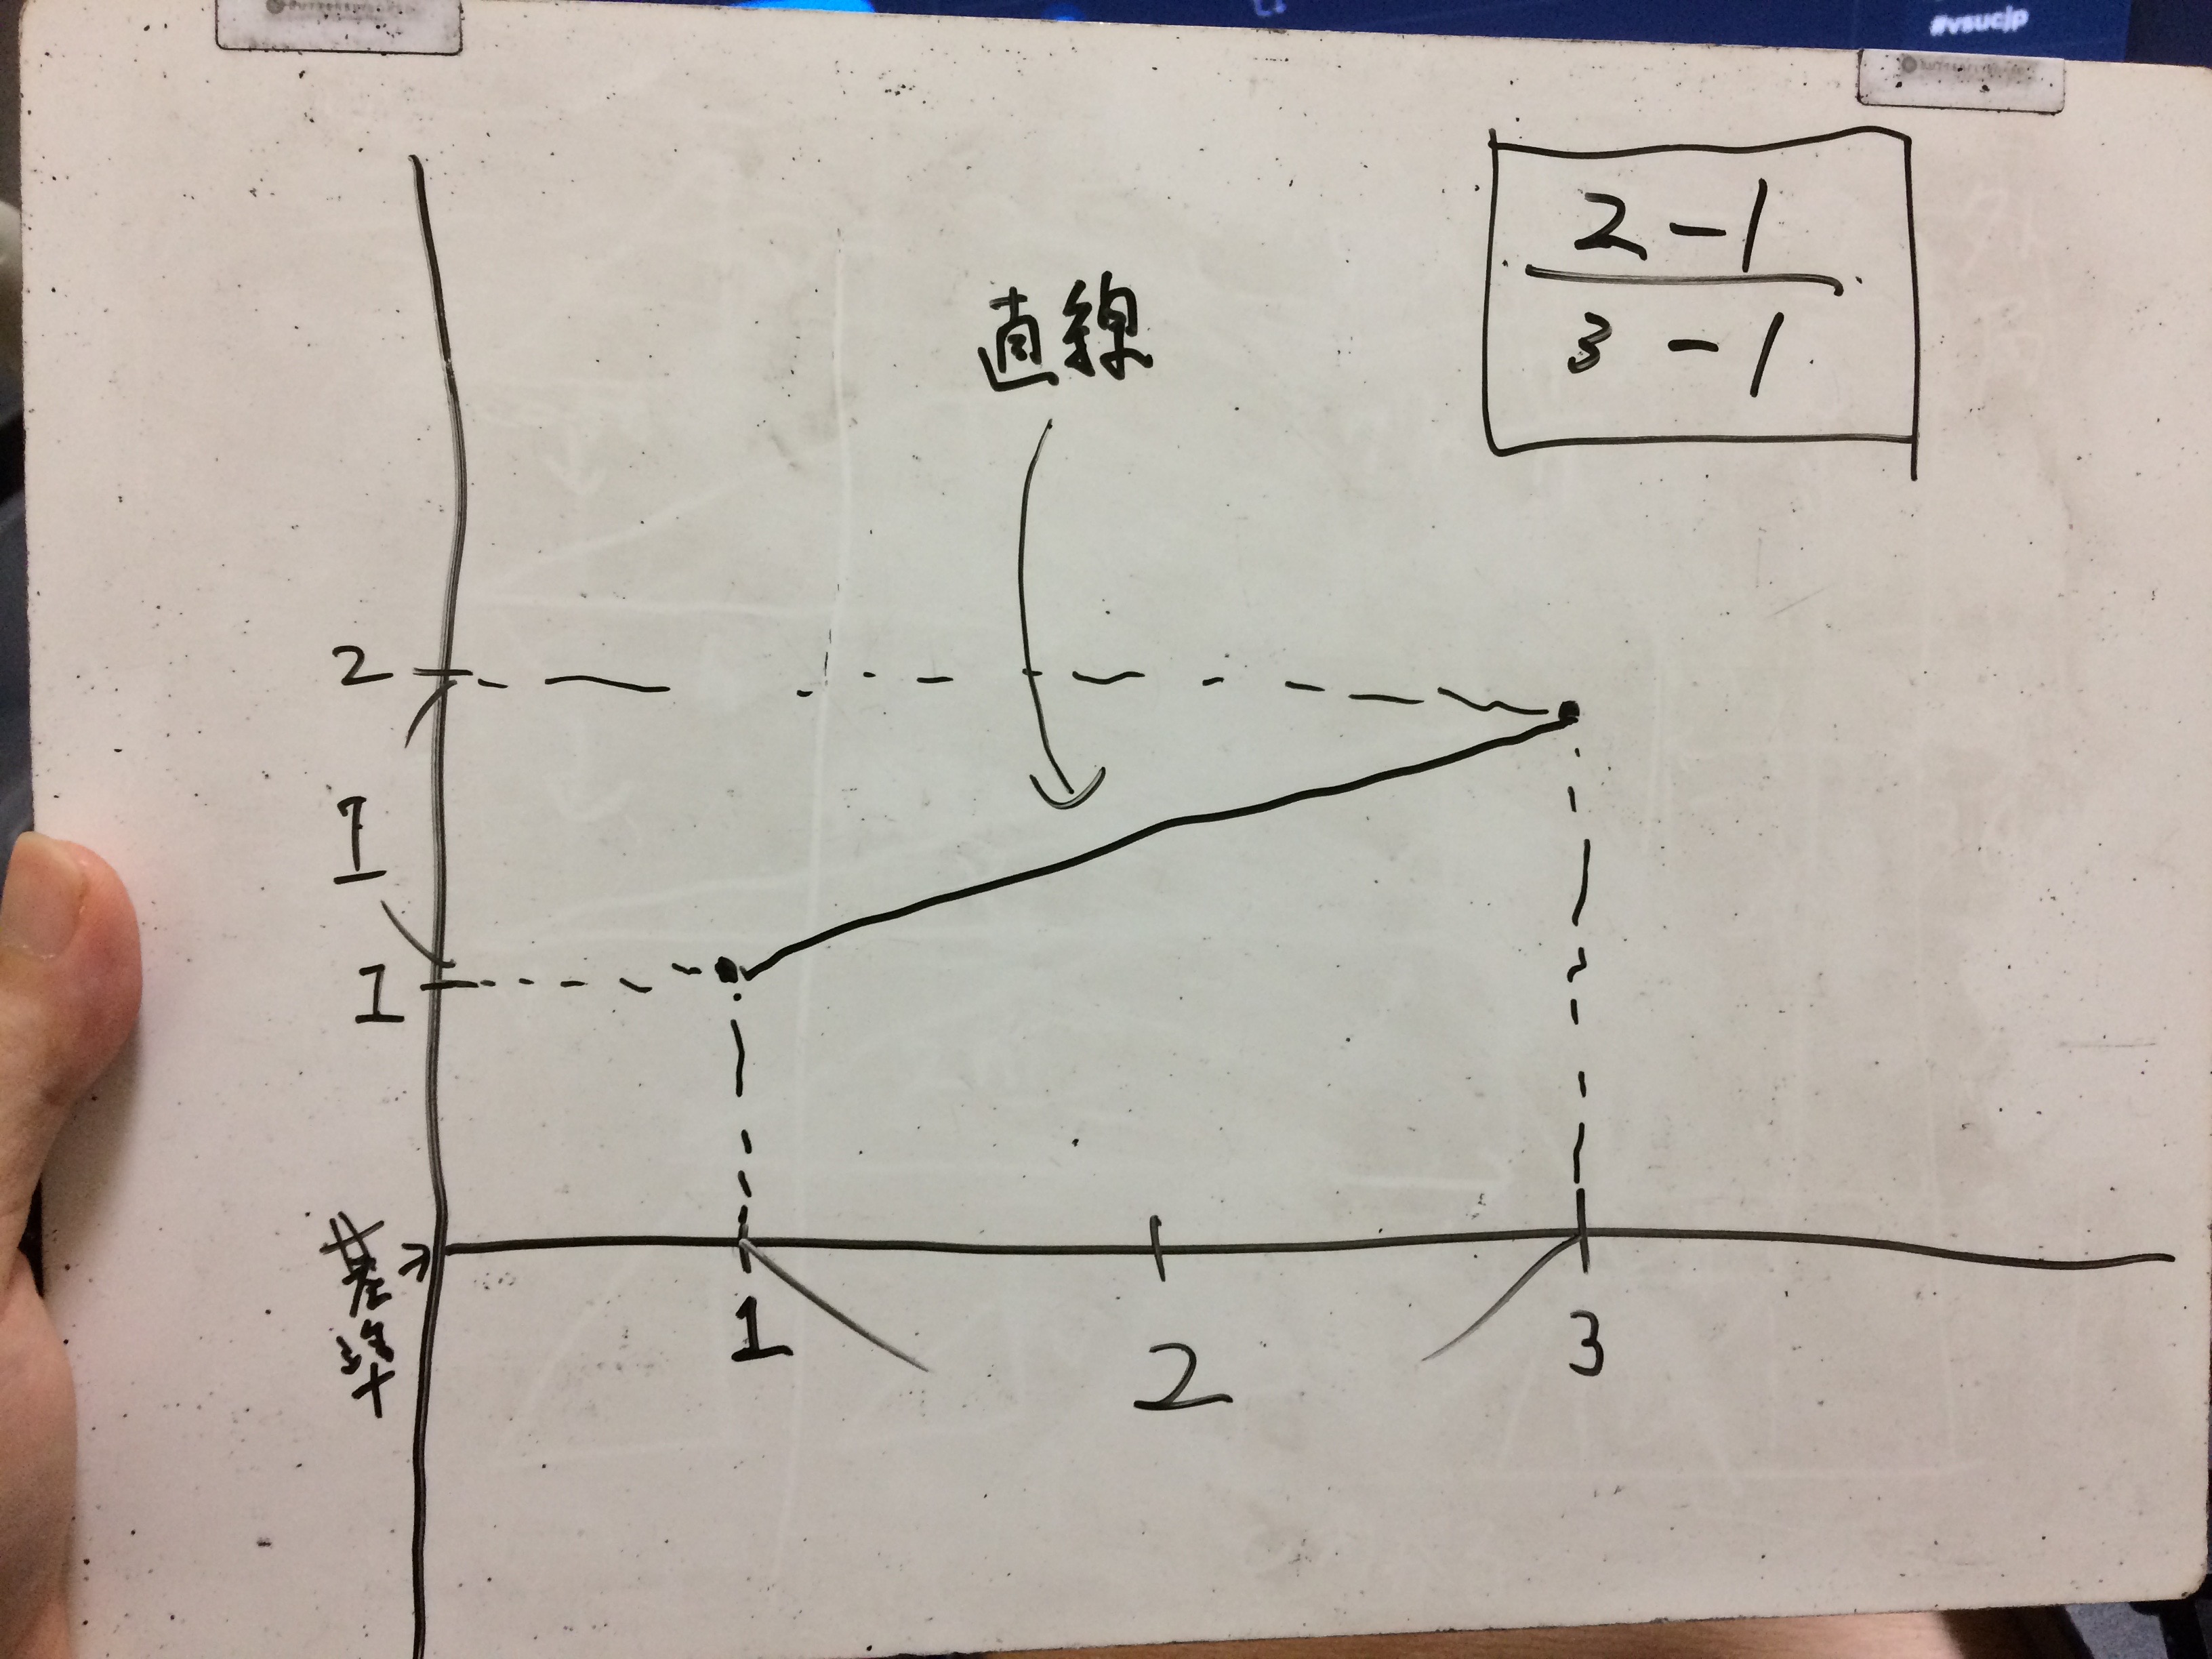 #vsucjp
2-1
3-1
直線
2
1
1
基準
1
2
3